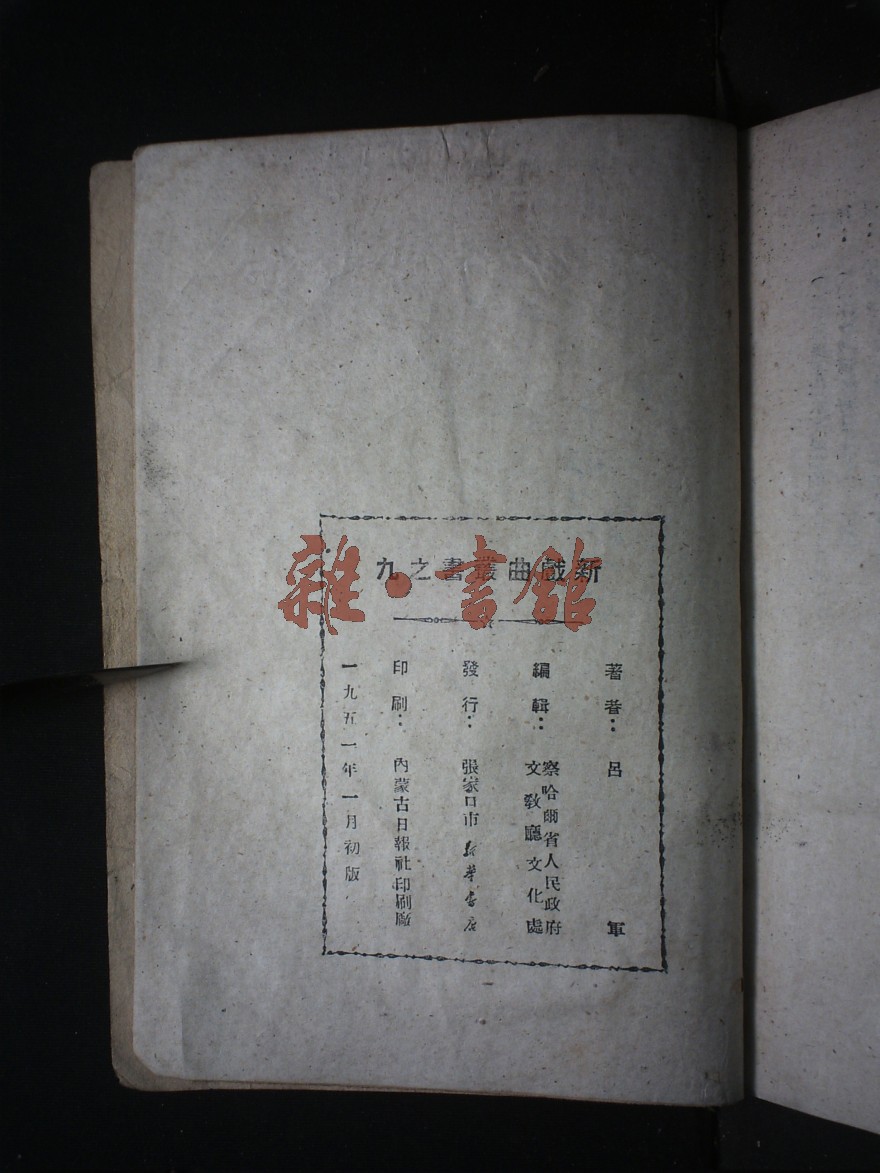 新戲曲叢書之九
雜·書館
著者：呂軍
編輯：察哈爾省人民政府
文教廳文化處
發行：張家口市新華書店
印刷：內蒙古日報社印刷廠
一九五一年一月初版